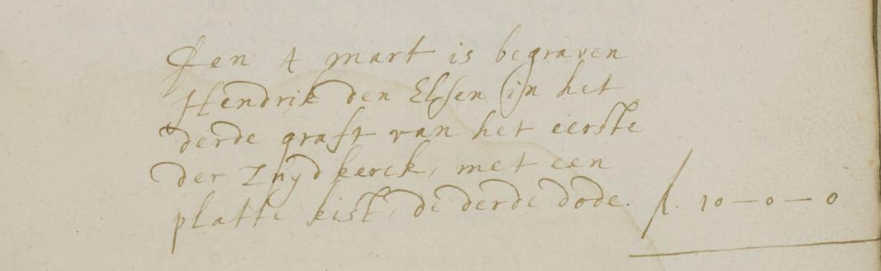 Den 4 mart is begraven
Hendrik den Elsen in het
derde graft van het eerste
der Zuydkerck, met een
platte kist, de derde dode. fl. 10-0-0